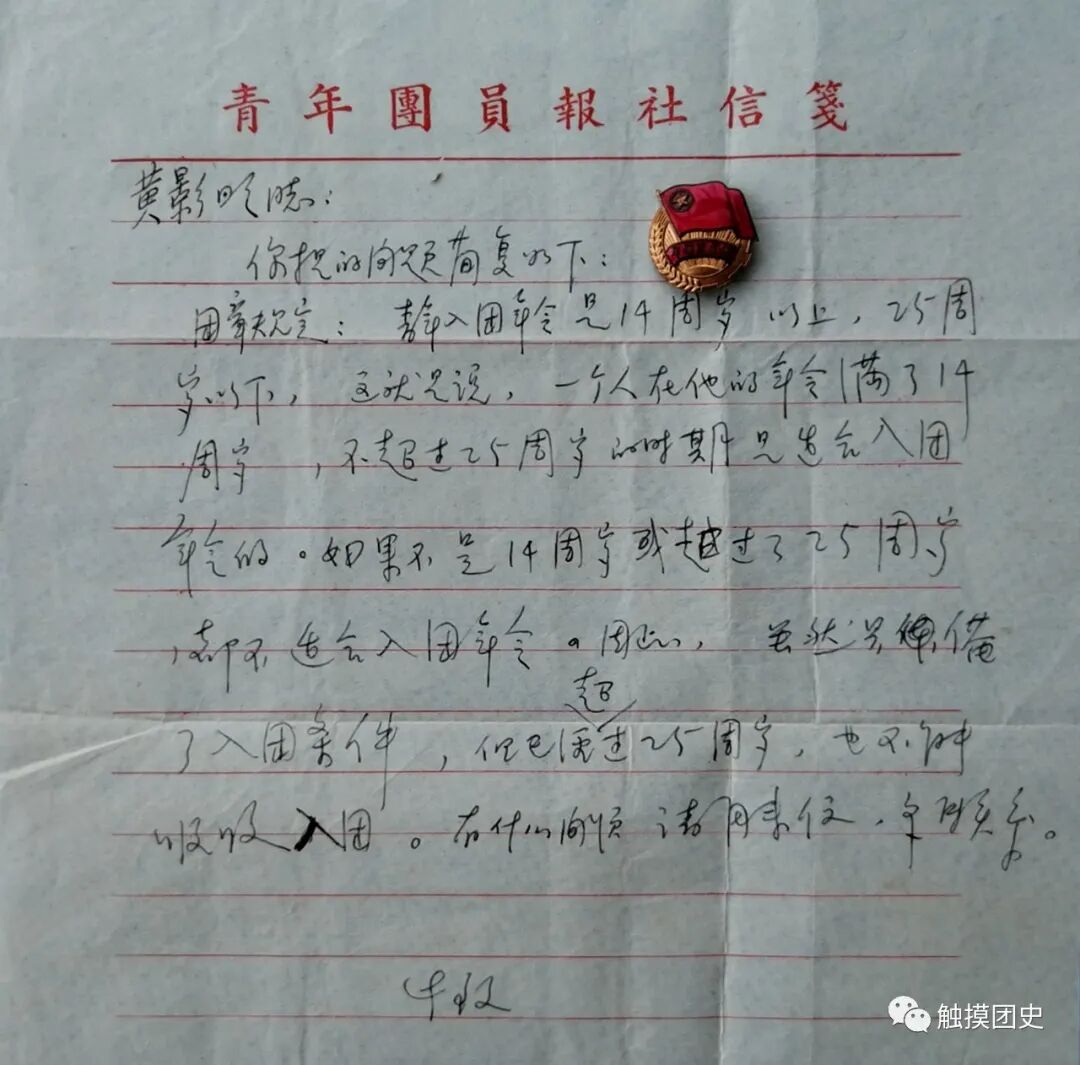 青年團員報社信箋
黄影明同志：
你提的问题简复如下：
团章规定：青年入团年令是14周岁以上，25周
岁以下，这就是说，一个人在他的年令满了14
周岁，不超过25周岁的时期是适合入团
年令的。如果不是14周岁或越过了25周岁
，都不适合入团年令。因此，虽然具备
了入团条件，但已超过25周岁，也不能
吸收入团。有什么问题请再来信，
触摸团史